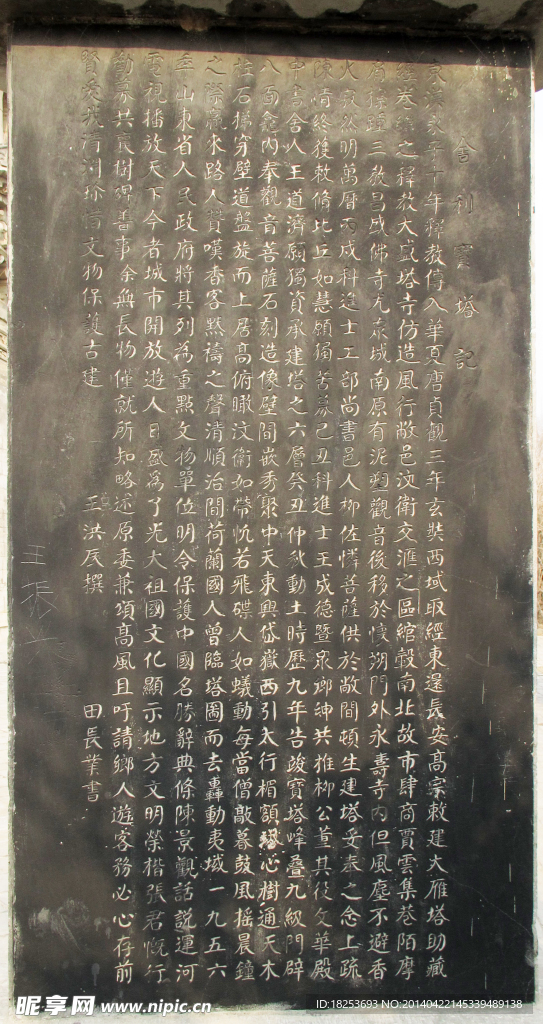 舍利寶塔記
東漢永平十年釋教傳入華夏唐貞觀三年玄奘西域取經東還長安高宗敕建大雁塔助藏
經卷 之釋教大盛塔寺仿造風行敝邑汶衛交滙之區綰轂南北故市肆商賈雲集巷陌摩
肩接踵三教昌盛佛寺尤 城南原有泥塑觀音後移於 朔門外永壽寺內但風塵不避香
火寂然明萬曆丙戍科進士工部尚書邑人柳佐憐菩薩供於敞間頓生建塔妥奉之念上疏
陳情終獲敕脩比丘如慧願獨苦募己丑科進士王成德暨眾鄉紳共推柳公董其役文華殿
中書舍人王道濟願獨資承建塔之六層癸丑仲秋動土時歷九年告竣寶塔峰疊九級門辟
八面龕內奉觀音菩薩石刻造像壁間嵌秀聚中天東興岱嶽西引太行楣額 心樹通天木
柱石梯穿壁道盤旋而上居高俯瞰汶衛如帶帆若飛磲人如蟻動每當僧敲暮鼓風摇晨鐘
之際 來路人贊嘆香客默禱之聲清順治間荷蘭國人曾臨塔圖而去轟動夷域一九五六
年山東省人民政府將其列為重點文物單位明令保護中國名勝辭典條陳景觀話説運河
電視播放天下今者城市開放遊人日盛為了光大祖國文化顯示地方文明榮楷張君慨行
勸募共襄樹碑善事余無長物僅就所知略述原委兼頌高風且吁請鄉人遊客務必心存前
賢愛我清洲珍惜文物保護古建 王洪辰撰 田長業書
王振
昵享网 www.nipic.cn
ID:18253693 NO:20140422145339489138